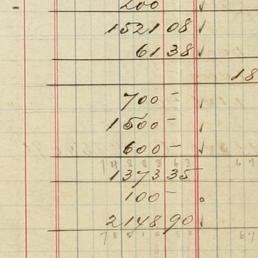 200
1521 08
61 38
18
700 –
1500 –
600 –
1373 35
100 –
2148 90